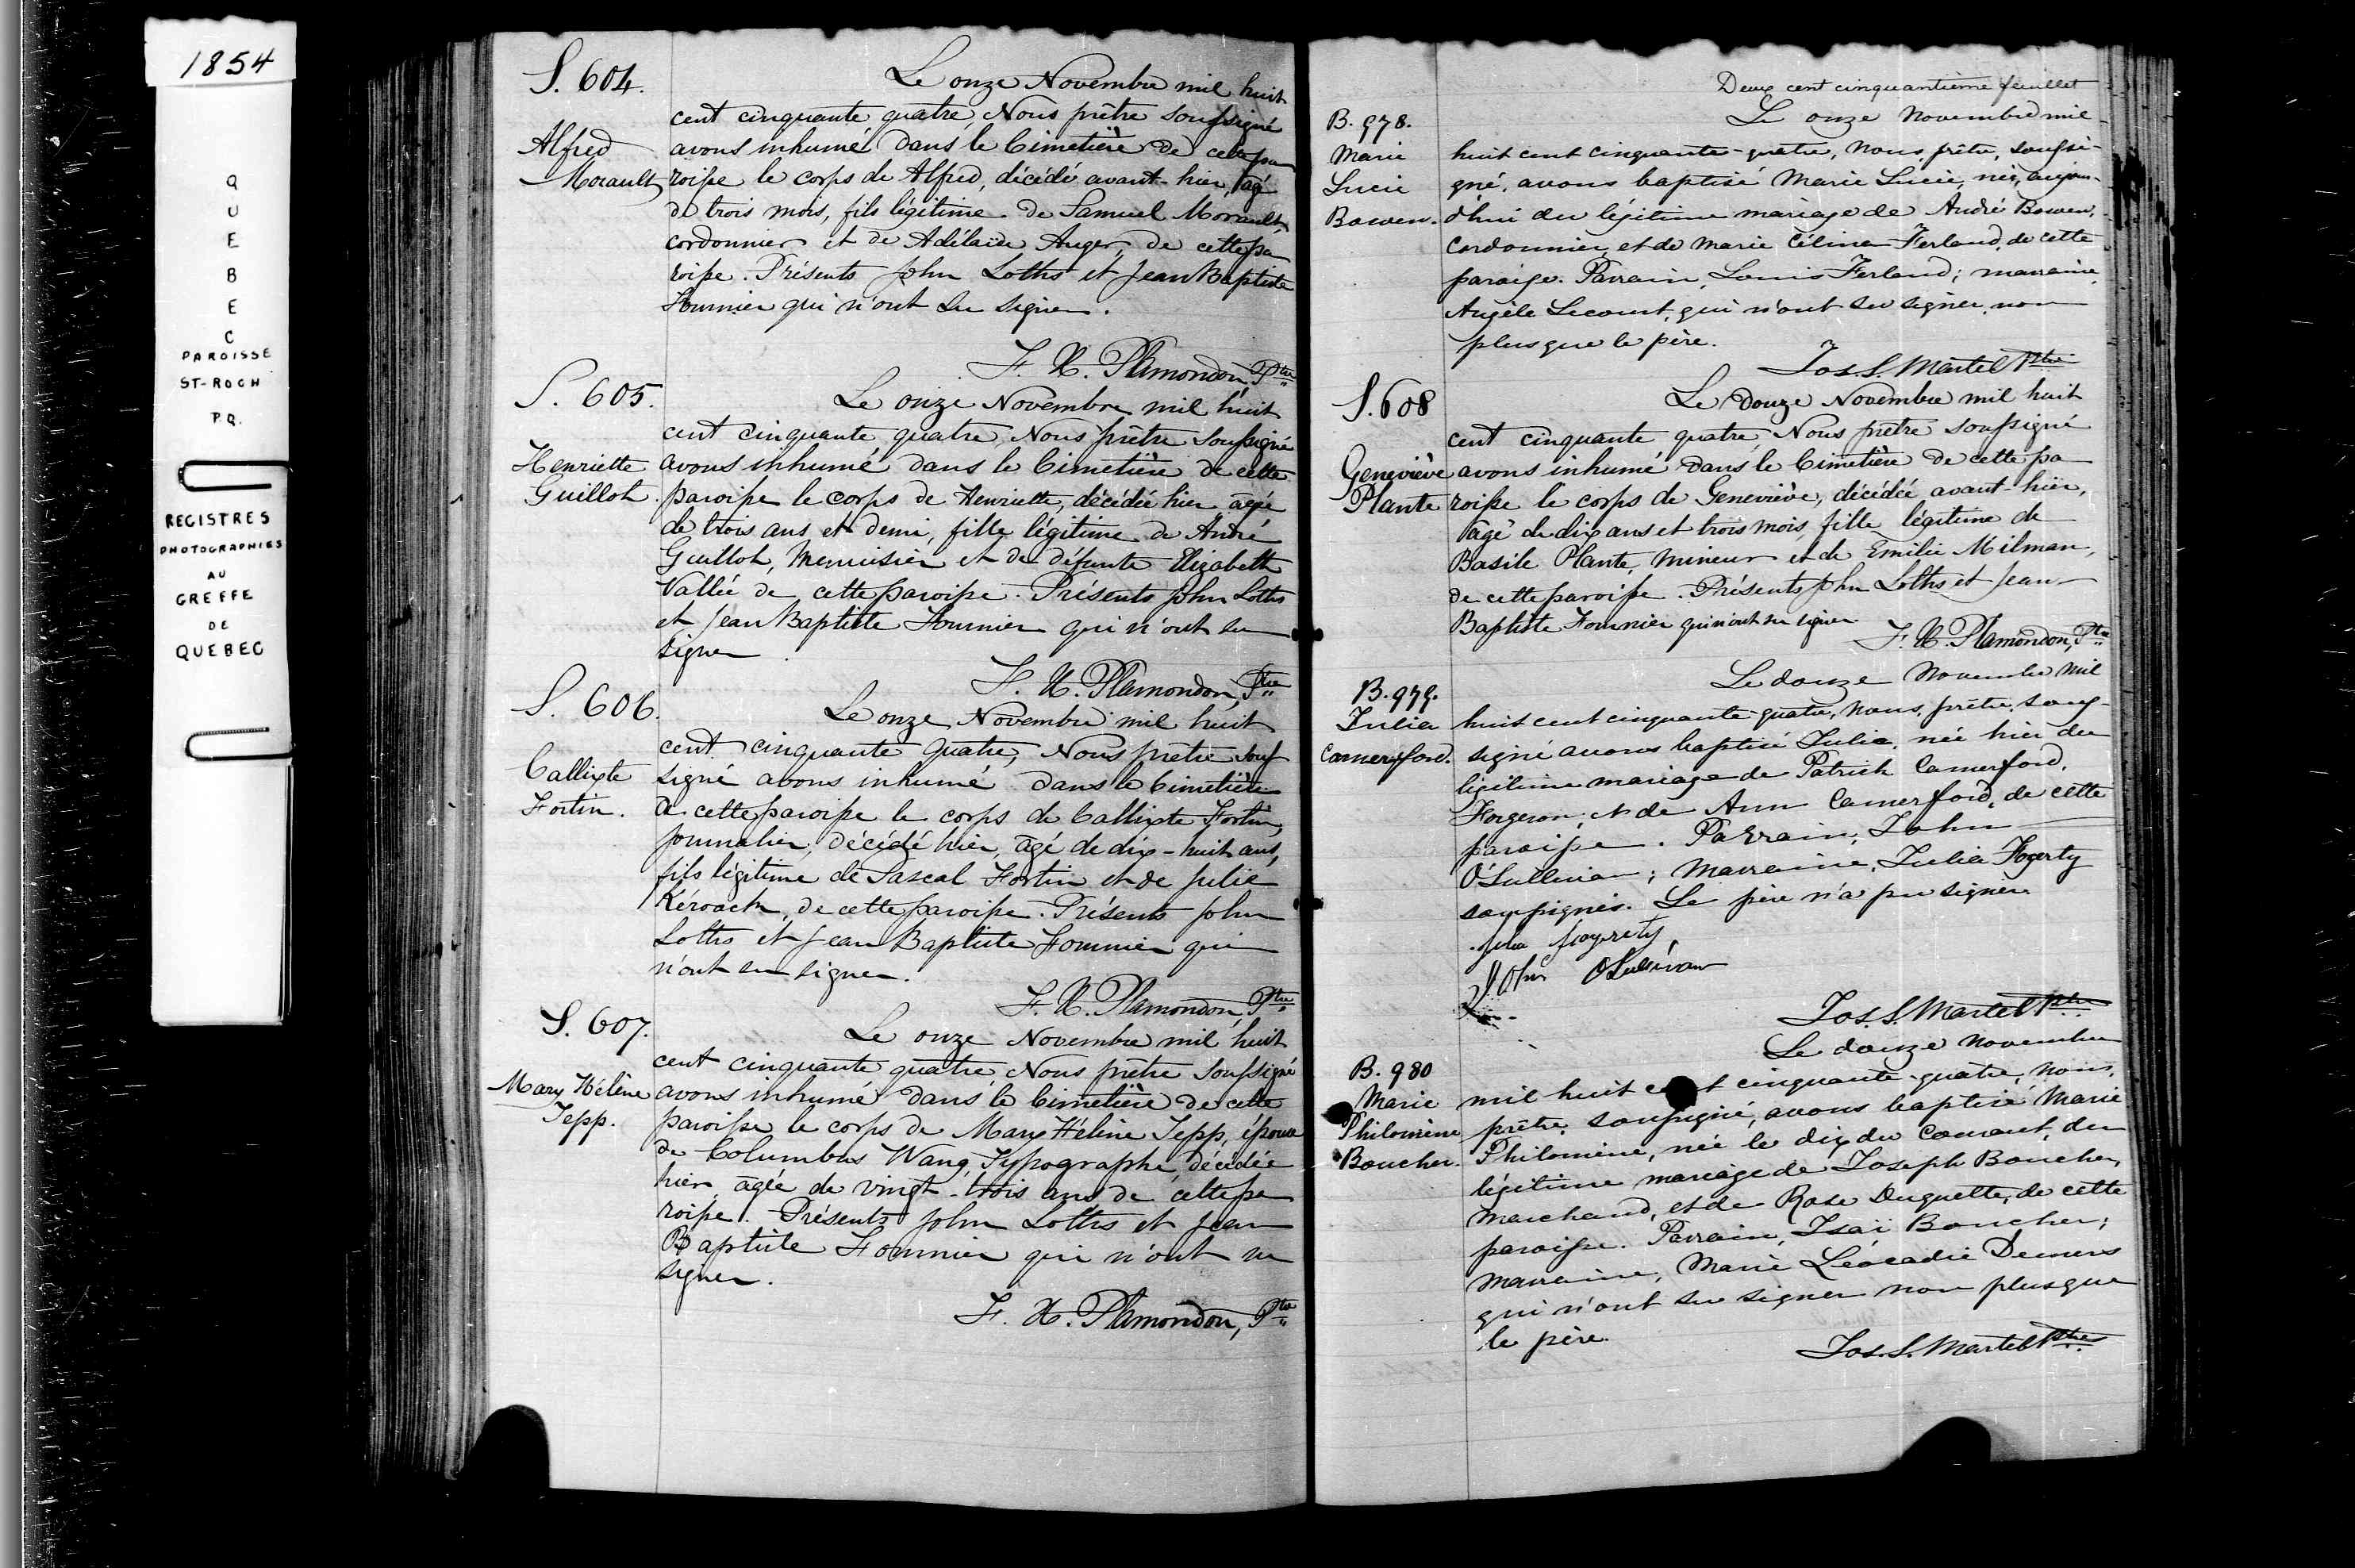 1854
QUEBEC
PAROISSE
ST-ROCH
P.Q.
REGISTRES
PHOTOGRAPHIES
AU
GREFFE
DE
QUEBEC
S. 604.
Alfred
Morault
Le onze Novembre mil huit
cent cinquante quatre, Nous prêtre soussigné
avons inhumé dans le Cimetière de cette pa
roisse le corps de Alfred, décédé avant-hier, agé
de trois mois, fils légitime de Samuel Morault,
cordonnier et de Adélaïde Auger, de cette pa
roisse. Présents John Loths et Jean Baptiste
Fournier qui n'ont su signer.
F. X. Plamondon, Ptre
S. 605.
Henriette
Guillot.
Le onze Novembre mil huit
cent cinquante quatre, Nous prêtre soussigné
avons inhumé dans le Cimetière de cette
paroisse le corps de Henriette, décédée hier agée
de trois ans et demi, fille légitime de André
Guillot, Menuisier et de défunte Elizabeth
Vallée de cette paroisse. Présents John Loths
et Jean Baptiste Fournier qui n'ont su
signer
F. X. Plamondon, Ptre
S. 606.
Callixte
Fortin.
Le onze Novembre mil huit
cent cinquante quatre, Nous prêtre sous
signé avons inhumé dans le Cimetière
de cette paroisse le corps de Callixte Fortin,
journalier, décédé hier, agé de dix-huit ans,
fils légitime de Pascal Fortin et de Julie
Kéroack, de cette paroisse. Présents John
Loths et Jean Baptiste Fournier qui
n'ont su signer.
F. X. Plamondon, Ptre
S. 607.
Mary Hélène
Tepp.
Le onze Novembre mil huit
cent cinquante quatre Nous prêtre soussigné
avons inhumé dans le Cimetière de cette
paroisse le corps de Mary Hélène Tepp, épouse
de Columbus Wang, Typographe, décédée
hier, agée de vingt-trois ans de cette pa
roisse. Présents John Loths et Jean
Baptiste Fournier qui n'ont su
signer.
F. X. Plamondon, Ptre
Deux cent cinquantième feuillet
B. 978.
Marie
Lucie
Bowen.
Le onze Novembre mil
huit cent cinquante-quatre, nous, prêtre, soussi-
gné, avons baptisé Marie Lucie, née, aujour-
d'hui du légitime mariage de André Bowen,
Cordonnier, et de Marie Célina Ferland, de cette
paroisse. Parrain, Louis Ferland; marraine,
Angèle Lecourt, qui n'ont su signer, non
plus que le père.
Jos. S. Martel Ptre
S. 608
Geneviève
Plante
Le Douze Novembre mil huit
cent cinquante quatre, Nous prêtre soussigné
avons inhumé dans le Cimetière de cette pa
roisse le corps de Geneviève, décédée avant-hier,
agé de dix ans et trois mois, fille légitime de
Basile Plante, Mineur et de Emilie Milman,
de cette paroisse. Présents John Loths et Jean
Baptiste Fournier qui n'ont su signer
F. X. Plamondon, Ptre
B. 979.
Julia
Camerford.
Le douze Novembre mil
huit cent cinquante-quatre, nous, prêtre, sous-
signé avons baptisé Julia, née hier du
légitime mariage de Patrick Camerford,
Forgeron, et de Ann Camerford, de cette
paroisse. Parrain, John
O'Sullivan; Marraine, Julia Fogerty
soussignés. Le père n'a pu signer.
Julia Fogerty
John OSullivan
Jos. S. Martel Ptre
B. 980
Marie
Philomène
Boucher.
Le douze novembre
mil huit cent cinquante-quatre, nous,
prêtre, soussigné, avons baptisé Marie
Philomène, née le dix du Courant, du
légitime mariage de Joseph Boucher,
marchand, et de Rose Duquette, de cette
paroisse. Parrain, Isaï Boucher;
marraine, Marie Léocadie Demers
qui n'ont su signer non plus que
le père.
Jos. S. Martel Ptre